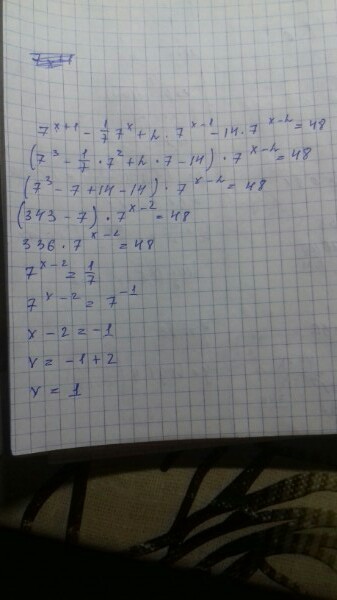 7^{x+1} - \frac{1}{7} 7^x + 2 \cdot 7^{x-1} - 14 \cdot 7^{x-2} = 48
(7^3 - \frac{1}{7} \cdot 7^2 + 2 \cdot 7 - 14) \cdot 7^{x-2} = 48
(7^3 - 7 + 14 - 14) \cdot 7^{x-2} = 48
(343 - 7) \cdot 7^{x-2} = 48
336 \cdot 7^{x-2} = 48
7^{x-2} = \frac{1}{7}
7^{x-2} = 7^{-1}
x - 2 = -1
x = -1 + 2
x = 1